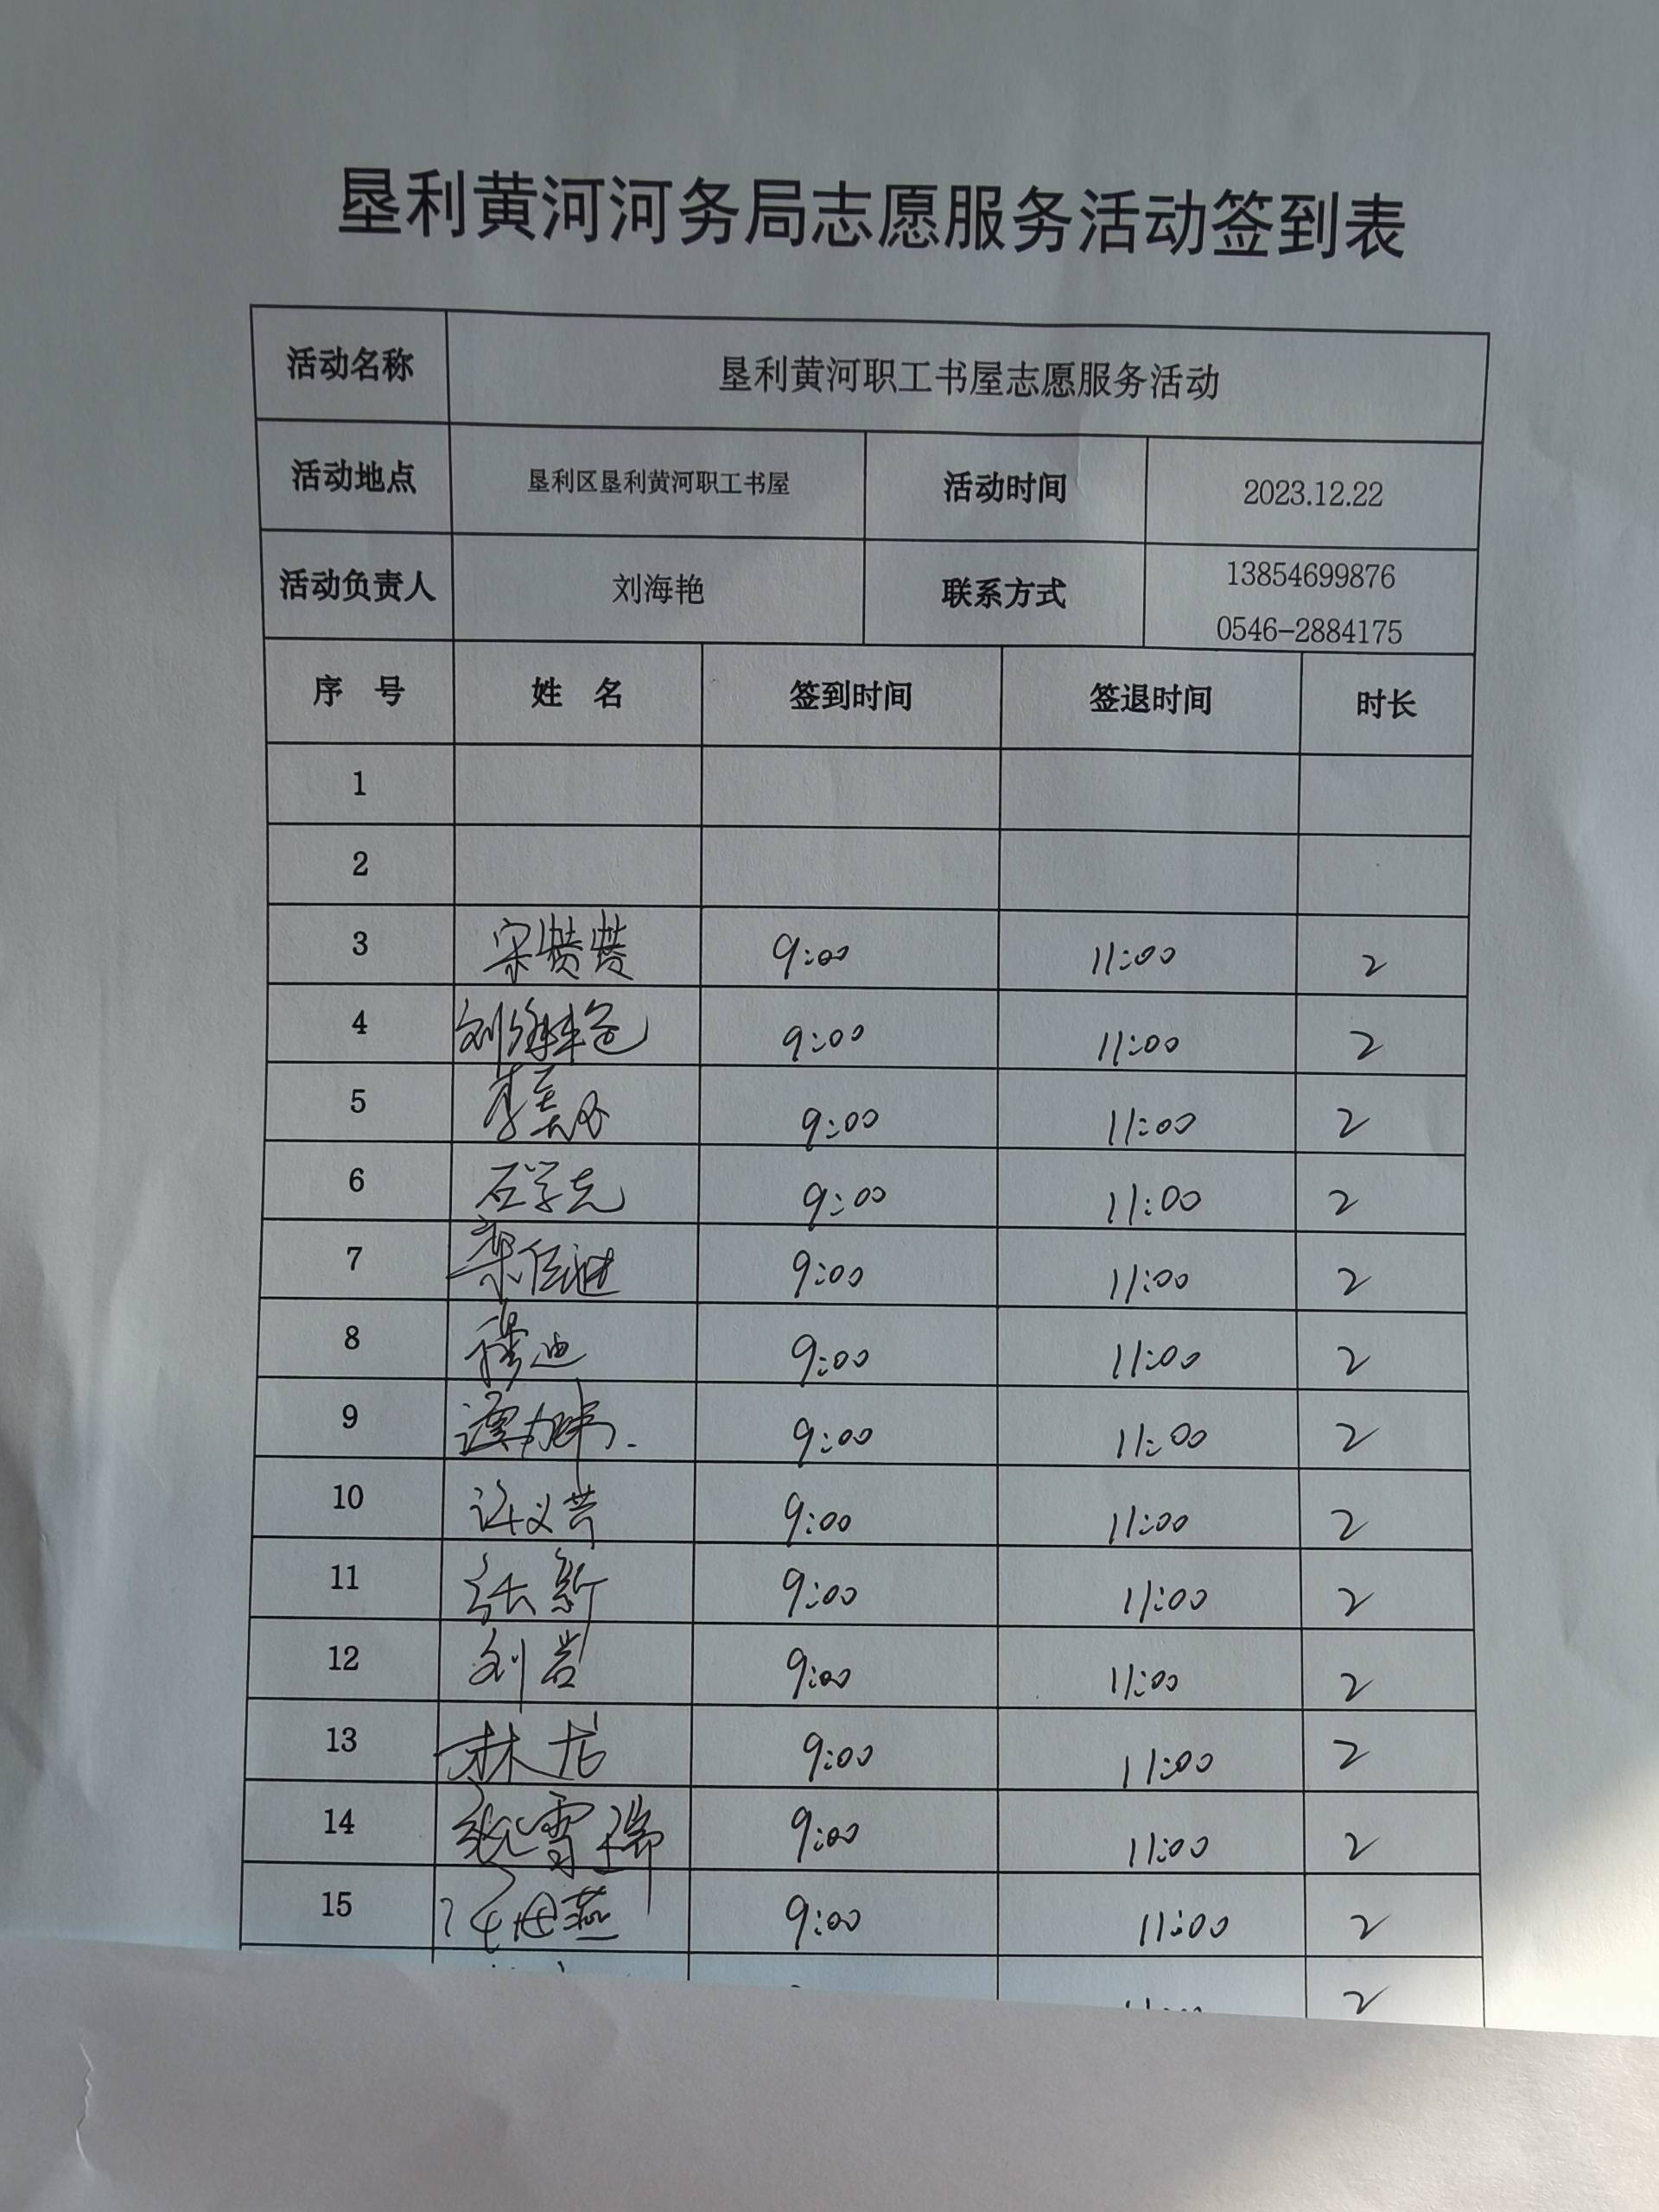 垦利黄河河务局志愿服务活动签到表
活动名称 垦利黄河职工书屋志愿服务活动
活动地点 垦利区垦利黄河职工书屋 活动时间 2023.12.22
活动负责人 刘海艳 联系方式 13854699876
0546-2884175
序 号 姓 名 签到时间 签退时间 时长
1
2
3 宋 9:00 11:00 2
4 刘 9:00 11:00 2
5 李 9:00 11:00 2
6 石学克 9:00 11:00 2
7 9:00 11:00 2
8 穆迪 9:00 11:00 2
9 谭 9:00 11:00 2
10 许义芹 9:00 11:00 2
11 张新 9:00 11:00 2
12 刘岩 9:00 11:00 2
13 林龙 9:00 11:00 2
14 张雪瑞 9:00 11:00 2
15 燕 9:00 11:00 2
2